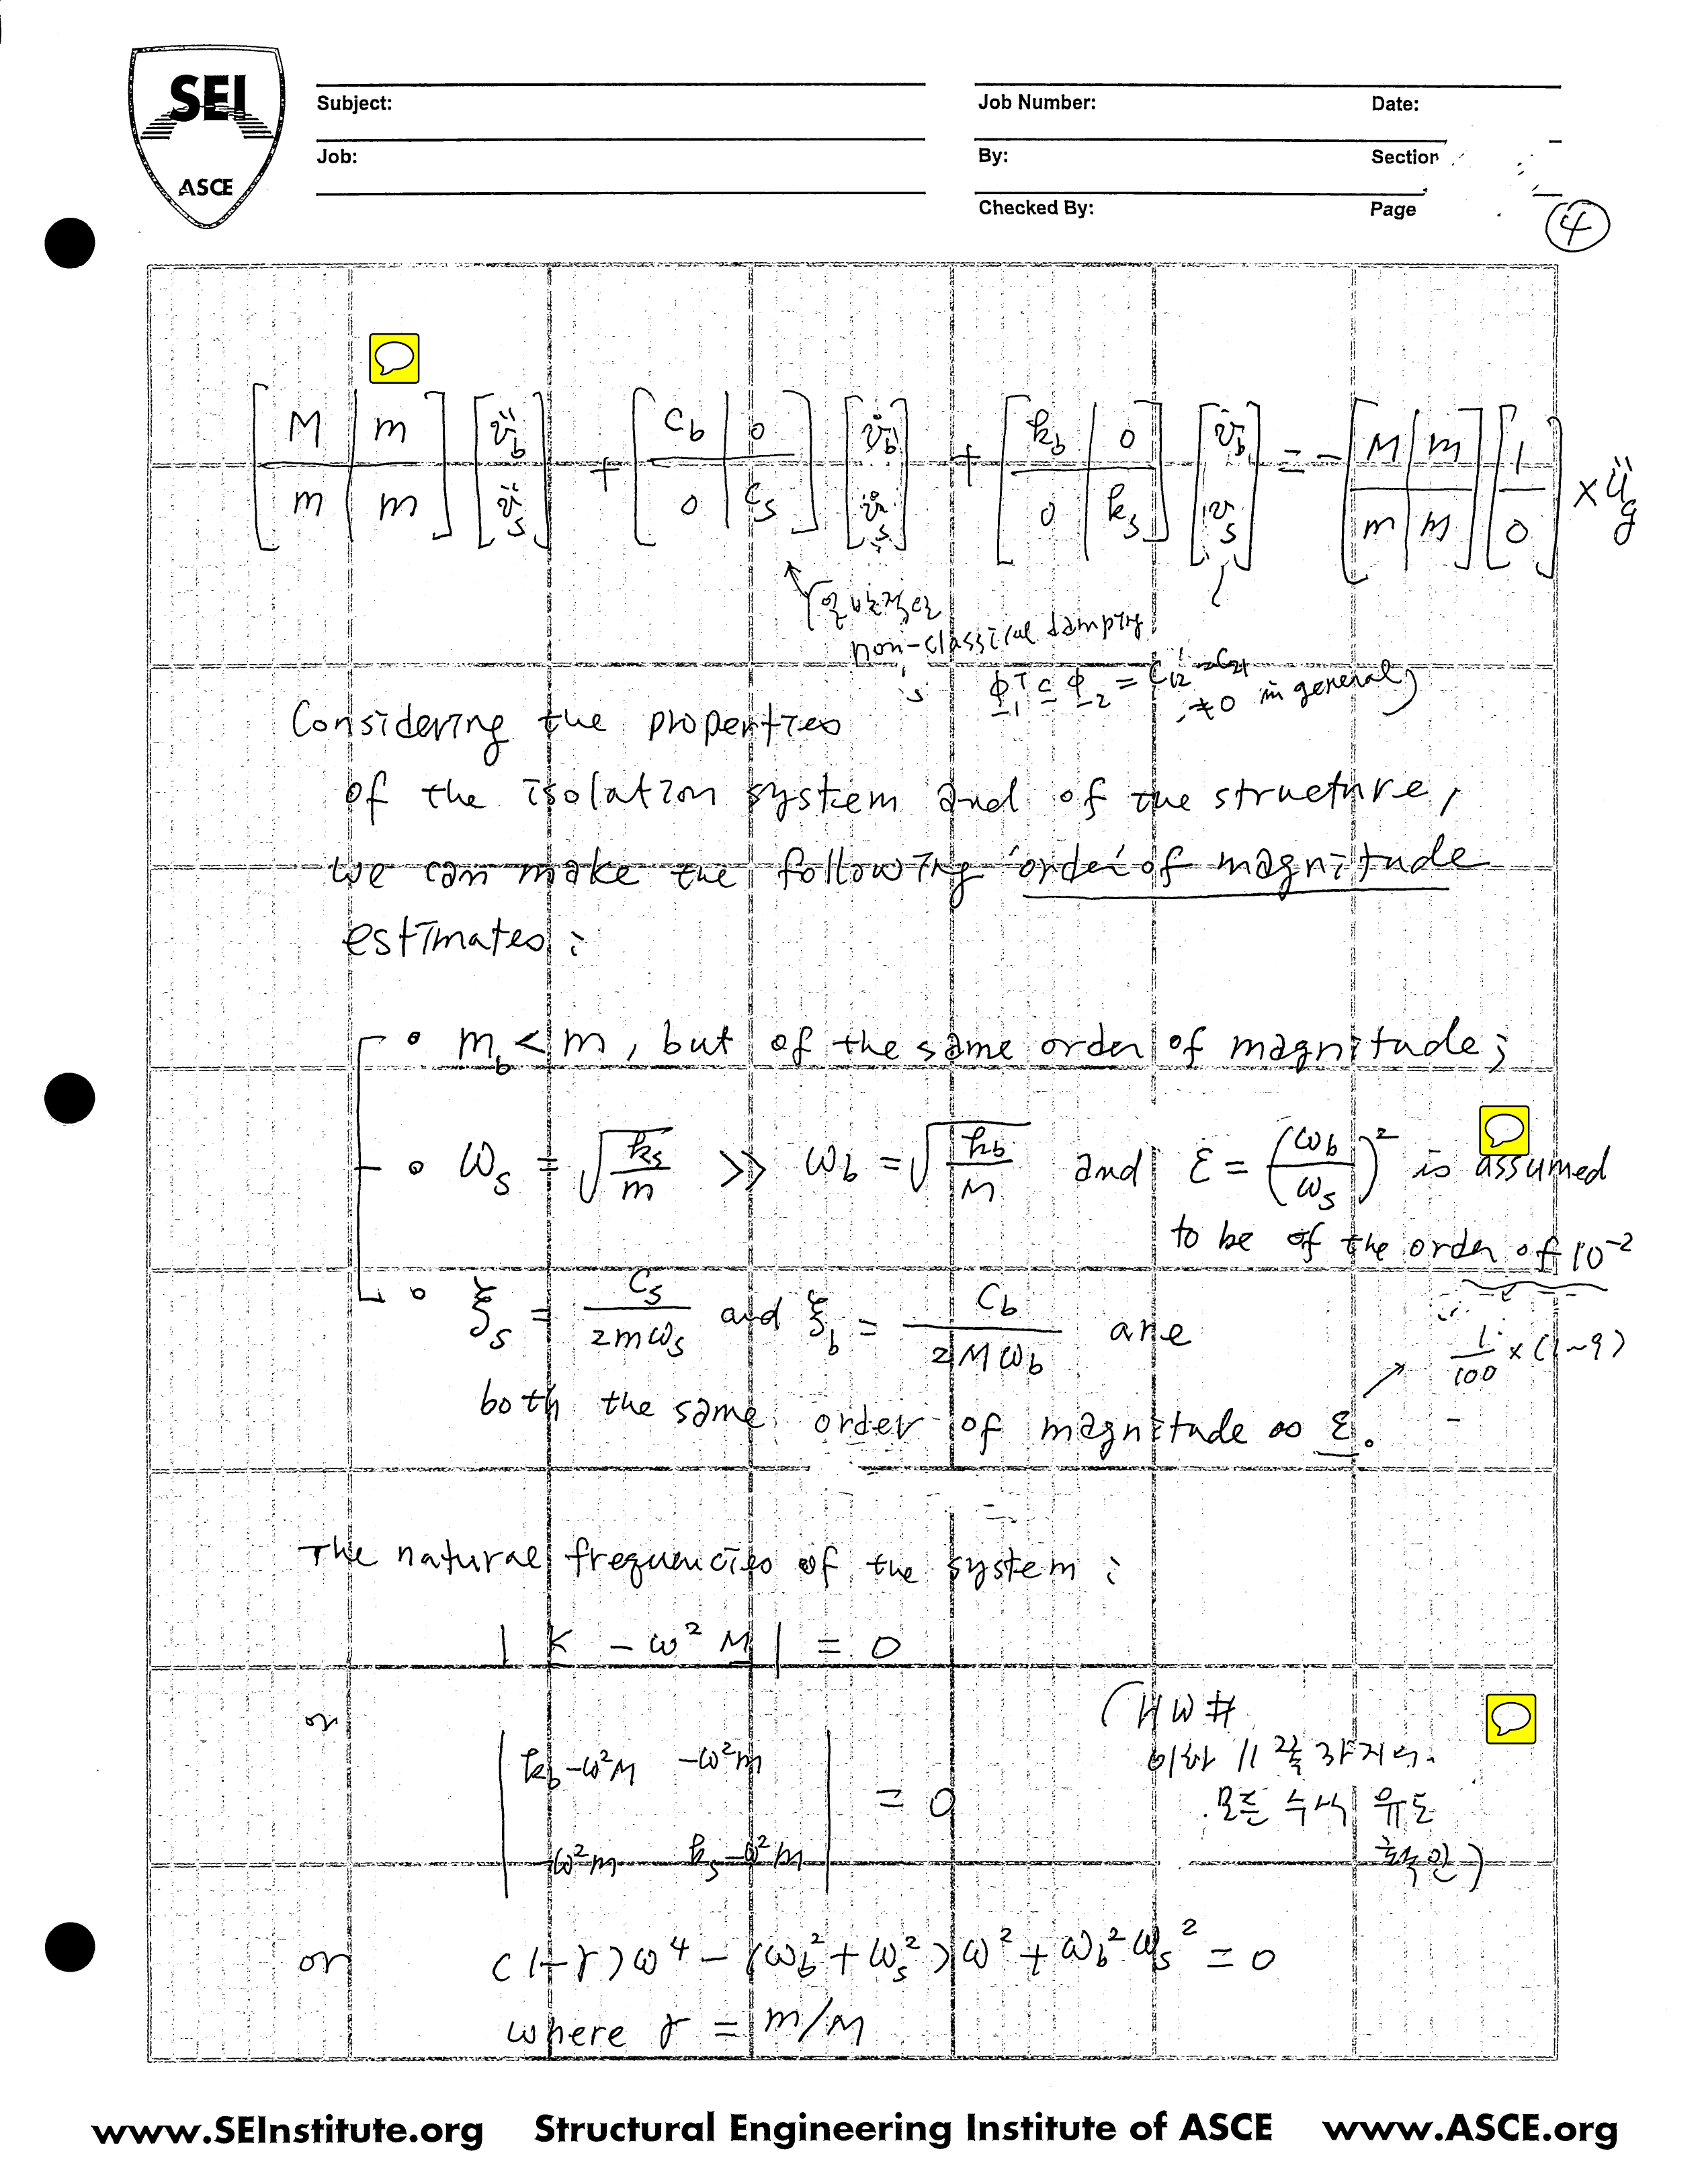 SEI
ASCE
Subject:
Job Number:
Date:
Job:
By:
Section
Checked By:
Page
④
[M m; m m] [v̈_b; v̈_s] + [c_b 0; 0 c_s] [v̇_b; v̇_s] + [k_b 0; 0 k_s] [v_b; v_s] = -[M m; m m] [1; 0] × ü_g
일반적인
non-classical damping
Φ₁ᵀ c Φ₂ = C₁₂ = C₂₁
≠ 0 in general)
Considering the properties
of the isolation system and of the structure,
we can make the following order of magnitude
estimates:
• m_b < m, but of the same order of magnitude;
• ω_s = √(k_s/m) ≫ ω_b = √(k_b/M) and ε = (ω_b/ω_s)² is assumed
to be of the order of 10⁻²
1/100 × (1~9)
• ξ_s = c_s/(2mω_s) and ξ_b = c_b/(2Mω_b) are
both the same order of magnitude as ε.
The natural frequencies of the system:
|K - ω²M| = 0
or
|k_b-ω²M -ω²m; -ω²m k_s-ω²m| = 0
(HW#
이하 11쪽까지의
모든 수식 유도
or (1-γ)ω⁴ - (ω_b² + ω_s²)ω² + ω_b²ω_s² = 0
where γ = m/M
www.SEInstitute.org Structural Engineering Institute of ASCE www.ASCE.org